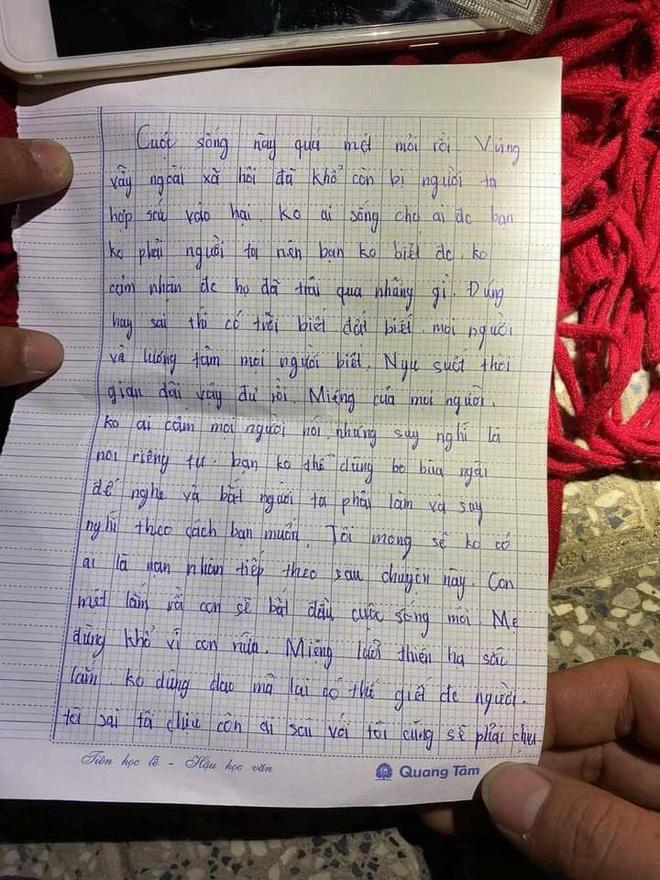 Cuộc sống này quá mệt mỏi rồi. Vùng
vẫy ngoài xã hội đã khổ còn bị người ta
hợp sức vào hại. Ko ai sống cho ai đc bạn
ko phải người ta nên bạn ko biết đc, ko
cảm nhận đc họ đã trải qua những gì. Đúng
hay sai thì có trời biết đất biết, mọi người
và lương tâm mọi người biết. Ngu suốt thời
gian dài vậy đủ rồi. Miệng của mọi người,
ko ai cấm mọi người nói, nhưng suy nghĩ là
nơi riêng tư. bạn ko thể dùng bỏ bùa ngải
để nghe và bắt người ta phải làm và suy
nghĩ theo cách bạn muốn. Tôi mong sẽ ko có
ai là nạn nhân tiếp theo sau chuyện này. Con
mệt lắm rồi con sẽ bắt đầu cuộc sống mới. Mẹ
đừng khổ vì con nữa. Miệng lưỡi thiên hạ sắc
lắm ko dùng dao mà lại có thể giết đc người.
tôi sai tôi chịu còn ai sai với tôi cũng sẽ phải chịu
Tiên học lễ - Hậu học văn
Quang Tâm